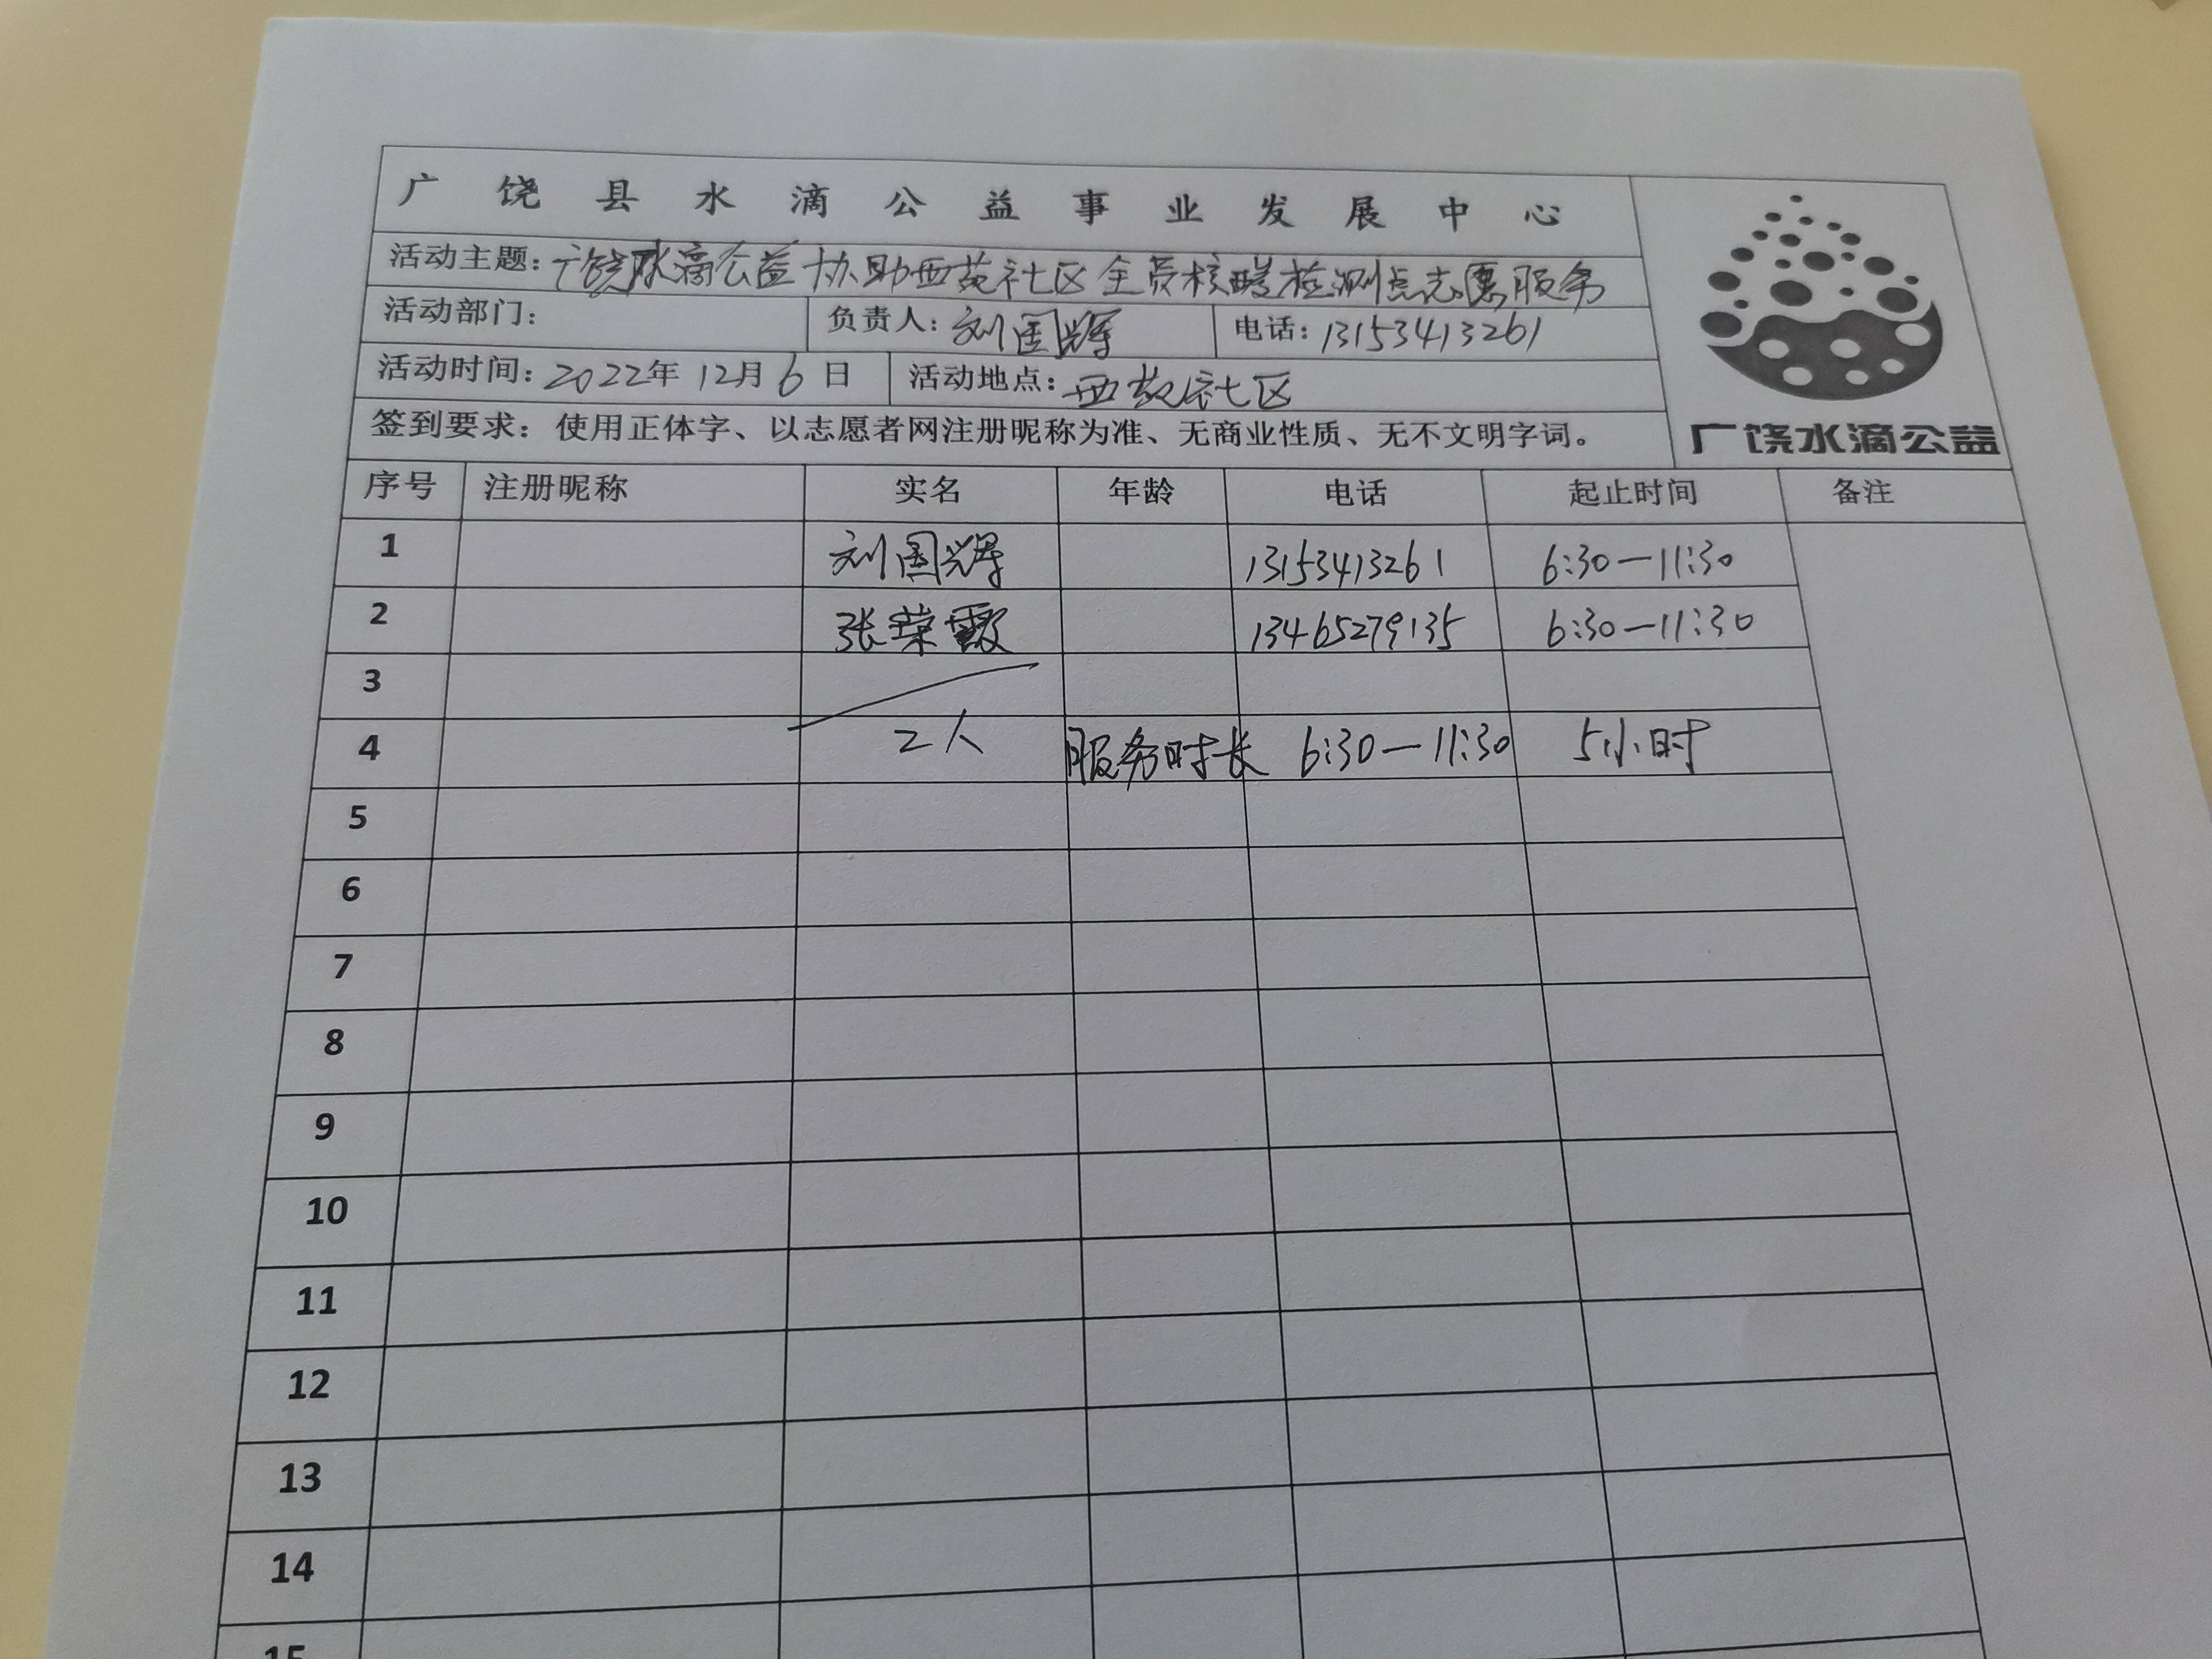 广饶县水滴公益事业发展中心
活动主题：广饶水滴公益协助西苑社区全员核酸检测点志愿服务
活动部门： 负责人：刘国辉 电话：13153413261
活动时间：2022年12月6日 活动地点：西苑社区
签到要求：使用正体字、以志愿者网注册昵称为准、无商业性质、无不文明字词。
广饶水滴公益
序号 注册昵称 实名 年龄 电话 起止时间 备注
1 刘国辉 13153413261 6:30—11:30
2 张荣霞 13465279135 6:30—11:30
3
4 2人 服务时长 6:30—11:30 5小时
5
6
7
8
9
10
11
12
13
14
15